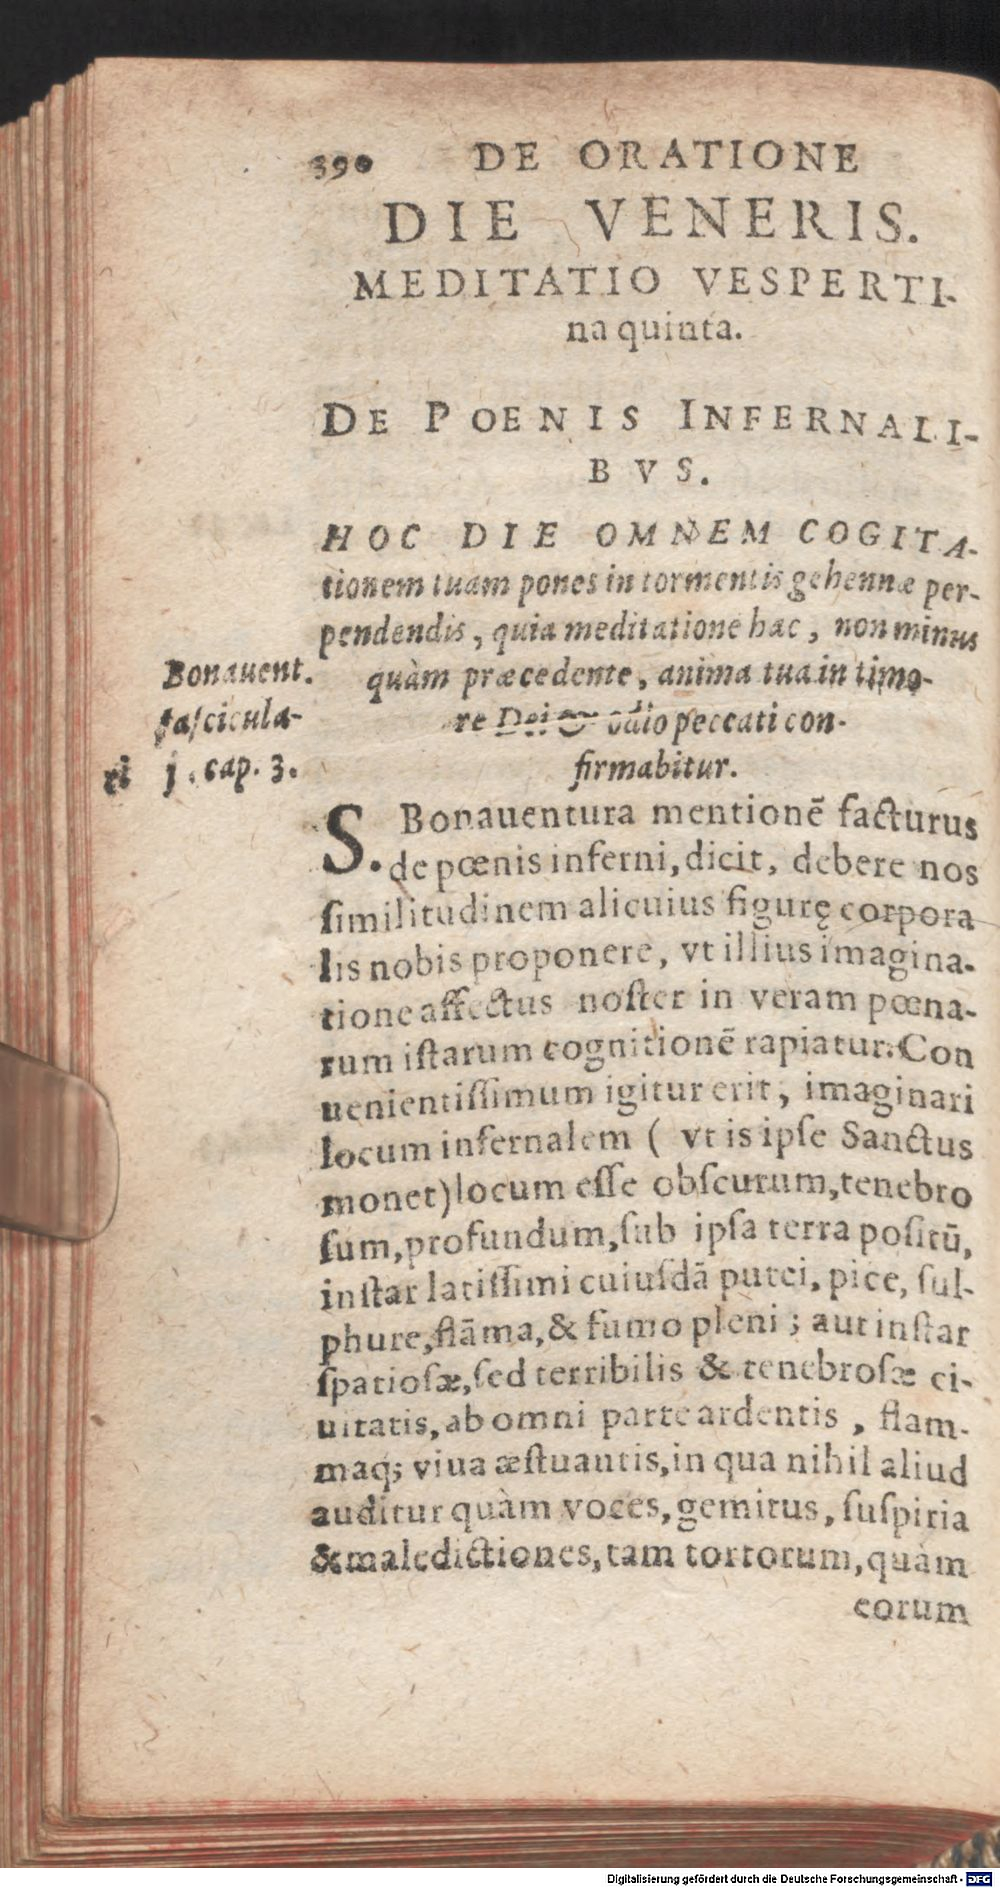 390 DE ORATIONE
DIE VENERIS.
MEDITATIO VESPERTI-
na quinta.
DE POENIS INFERNALI-
BVS.
HOC DIE OMNEM COGITA-
tionem tuam pones in tormentis gehennæ per-
pendendis, quia meditatione hac, non minus
quàm præcedente, anima tua in timo-
re Dei & odio peccati con-
firmabitur.
Bonauent.
fascicula-
ri j. cap. 3.
S. Bonauentura mentionẽ facturus
de pœnis inferni, dicit, debere nos
ſimilitudinem alicuius figurę corpora
lis nobis proponere, vt illius imagina-
tione affectus noſter in veram pœna-
rum iſtarum cognitionẽ rapiatur. Con
uenientiſſimum igitur erit, imaginari
locum infernalem ( vt is ipſe Sanctus
monet) locum eſſe obſcurum, tenebro
ſum, profundum, ſub ipſa terra poſitũ,
inſtar latiſſimi cuiuſdã putei, pice, ſul-
phure, flãma, & fumo pleni; aut inſtar
ſpatioſæ, ſed terribilis & tenebroſæ ci-
uitatis, ab omni parte ardentis, flam-
maq; viua æſtuantis, in qua nihil aliud
auditur quàm voces, gemitus, ſuſpiria
& maledictiones, tam tortorum, quàm
eorum
Digitalisierung gefördert durch die Deutsche Forschungsgemeinschaft - DFG